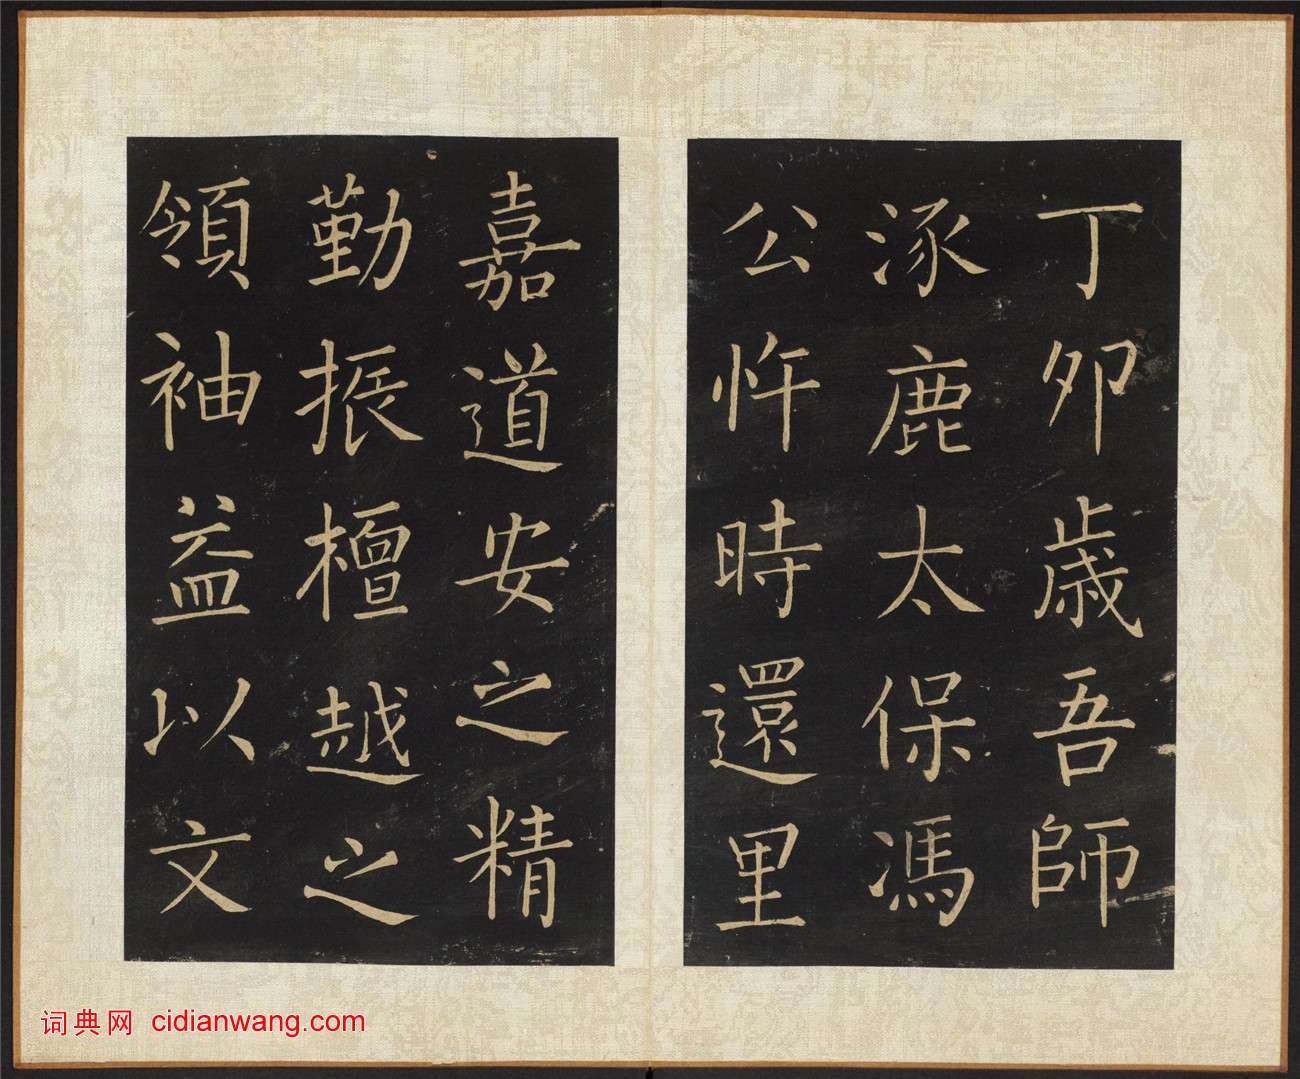 丁卯歲吾師
涿鹿太保馮
公忤時還里
嘉道安之精
勤振檀越之
領袖益以文
词典网 cidianwang.com